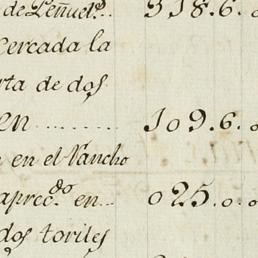 de Leñuel.s 318.6.
cercada la
rta de dos
en .......... 109.6.0
en el Rancho
aprec.do en.. 025.0.0
dos toriles